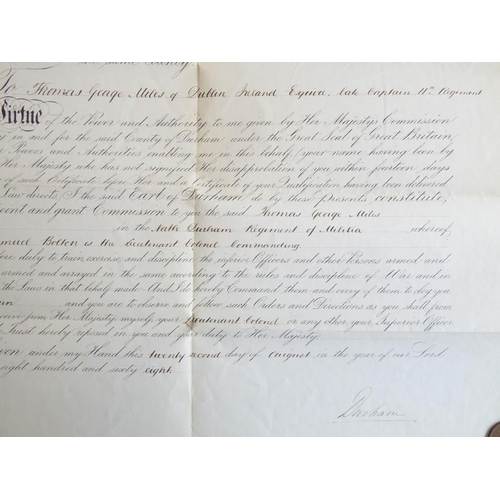 the same County.
To Thomas George Miles of Dublin Ireland Esquire late Captain 11th Regiment
Virtue of the Power and Authority to me given by Her Majestys Commission
and for the said County of Durham under the Great Seal of Great Britain,
Powers and Authorities enabling me in this behalf, your name having been by
Her Majesty who has not signified Her disapprobation of you within fourteen days
of such Certificate before Her and a Certificate of your Qualification having been delivered
Law directs, I the said Earl of Durham do by these presents constitute,
point and grant Commission to you the said Thomas George Miles
in the North Durham Regiment of Militia whereof
muel Bolton is the Lieutenant Colonel Commanding.
ore duty to train, exercise, and discipline the inferior Officers and other Persons armed and
armed and arrayed in the same according to the rules and discipline of War and in
the Laws in that behalf made And I do hereby Command them and every of them to obey you
and you are to observe and follow such Orders and Directions as you shall from
receive from Her Majesty myself your Lieutenant Colonel or any other your Superior Officer
Trust hereby reposed in you and your duty to Her Majesty.
ven under my Hand this twenty second day of August in the year of our Lord
eight hundred and sixty eight.
Durham